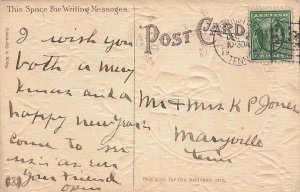 This Space For Writing Messages.
POST CARD
Made in Germany
10-30A
TENN
I wish you
both a mery
xmas and a
happy New year
come to see
us
Your Friend
Mr & Mrs K P Jones
Maryville
Tenn
This side for the Address only.